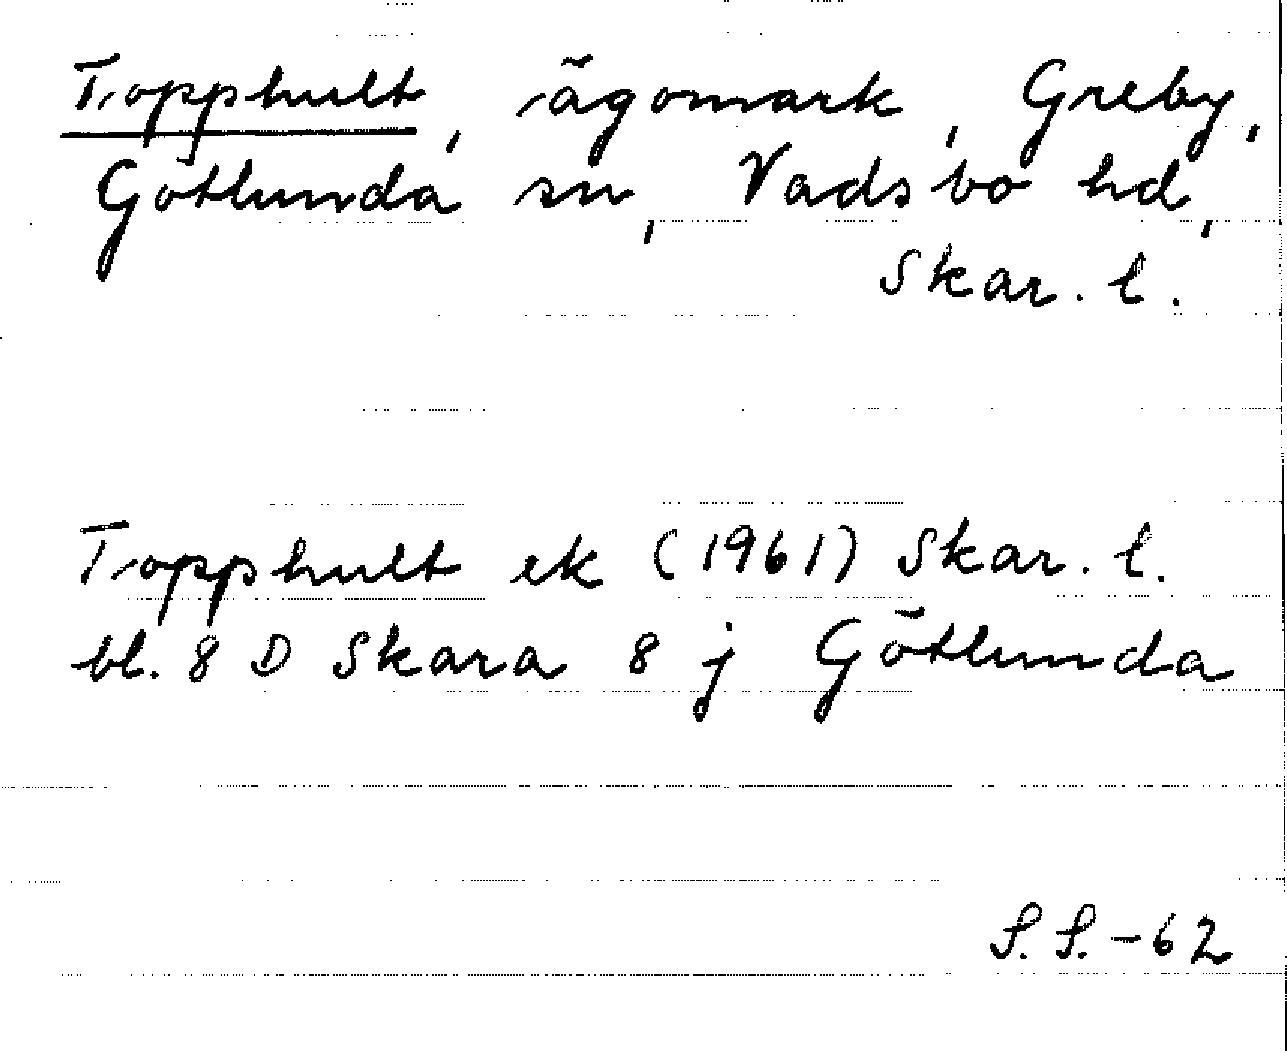 Topphult, ägomark, Greby,
Götlunda sn, Vadsbo hd,
Skar. l.
Topphult ek (1961) Skar. l.
bl. 8 D Skara 8 j Götlunda
S.S.-62